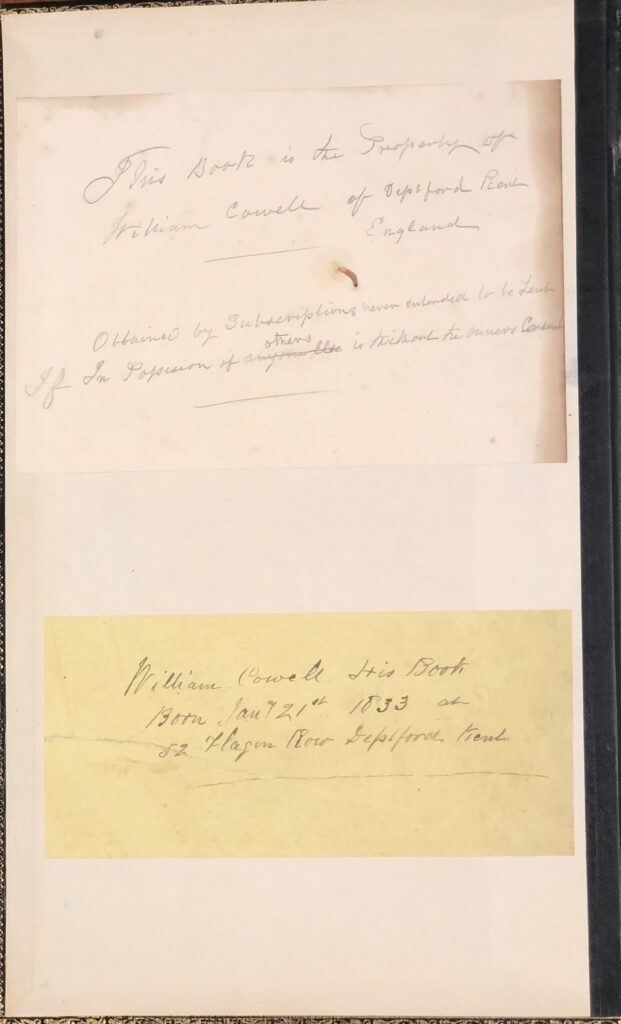 This Book is the Property of
William Cowell of Deptford Kent
England
Obtained by Subscriptions never entended to be Lent
others
If In Posession of anyone else is Without the owners Consent
William Cowell His Book
Born Jany 21st 1833 at
52 Flagon Row Deptford Kent